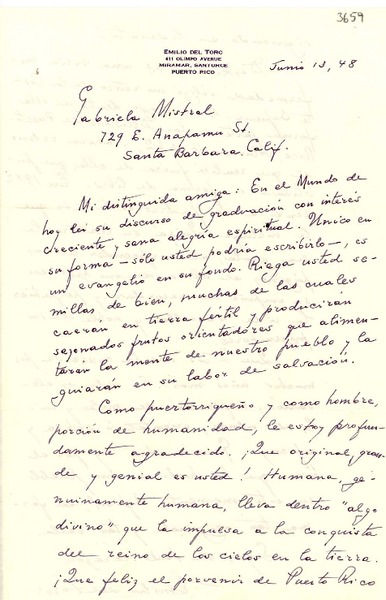 3659
EMILIO DEL TORO
611 OLIMPO AVENUE
MIRAMAR, SANTURCE
PUERTO RICO
Junio 13, 48
Gabriela Mistral
729 E. Anapamu St.
Santa Barbara. Calif.
Mi distinguida amiga: En el Mundo de
hoy leí su discurso de graduación con interés
creciente y sana alegría espiritual. Único en
su forma – sólo usted podría escribirlo –, es
un evangelio en su fondo. Riega usted se-
millas de bien, muchas de las cuales
caerán en tierra fértil y producirán
sazonados frutos orientadores que alimen-
tarán la mente de nuestro pueblo y la
guiarán en su labor de salvación.
Como puertorriqueño y como hombre,
porción de humanidad, le estoy profun-
damente agradecido. ¡Que original, gran-
de y genial es usted! Humana, ge-
nuinamente humana, lleva dentro "algo
divino" que la impulsa a la conquista
del reino de los cielos en la tierra.
¡Que feliz el porvenir de Puerto Rico